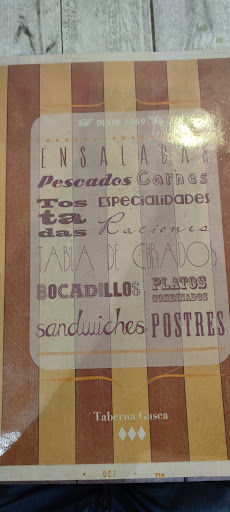 DESDE 1969
ENSALADAS
Pescados Carnes
Tos ta das
ESPECIALIDADES
Raciones
TABLA DE CURADOS
BOCADILLOS
PLATOS
COMBINADOS
sandwiches
POSTRES
Taberna Gasca
OCT